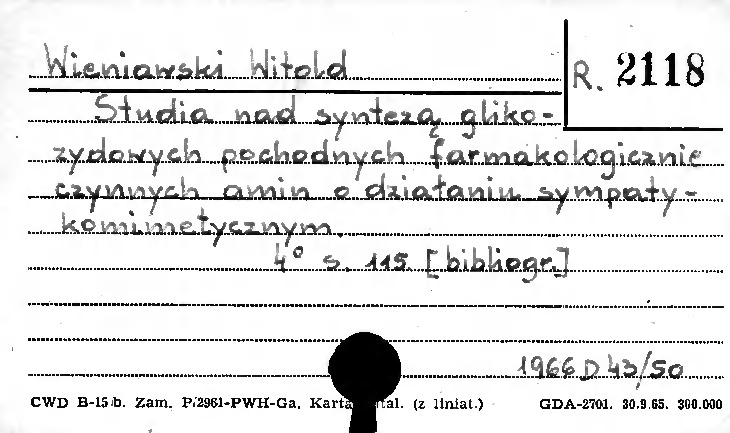 Wieniawski Witold
R. 2118
Studia nad syntezą gliko-
zydowych pochodnych farmakologicznie
czynnych amin o działaniu sympaty-
komimetycznym.
4° s. 115 [bibliogr.]
1966 D 43/50
CWD B-15/b. Zam. P/2961-PWH-Ga. Karta tal. (z liniat.) GDA-2701. 30.9.65. 300.000